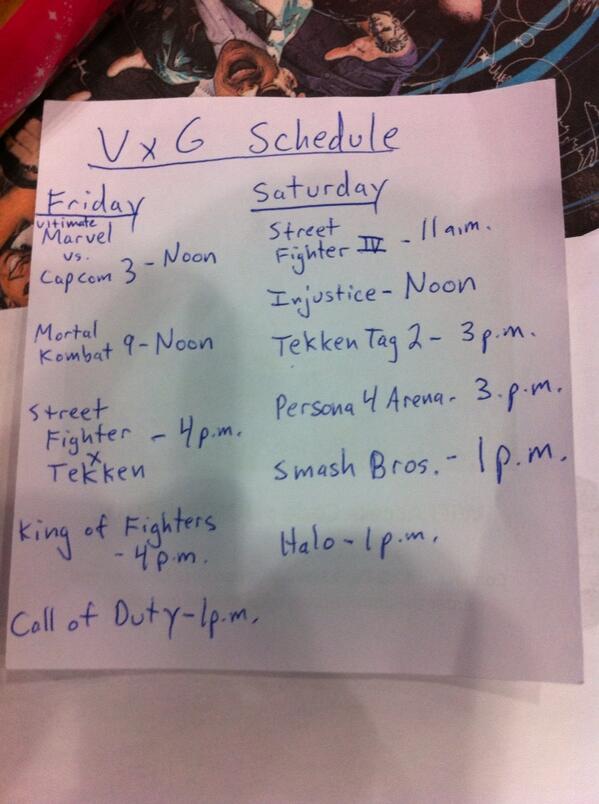 VxG Schedule
Friday
Ultimate
Marvel
vs.
Capcom 3 - Noon
Mortal
Kombat 9 - Noon
Street
Fighter - 4p.m.
x
Tekken
King of Fighters
- 4p.m.
Call of Duty - 1p.m.
Saturday
Street
Fighter IV - 11a.m.
Injustice - Noon
Tekken Tag 2 - 3p.m.
Persona 4 Arena - 3.p.m.
Smash Bros. - 1p.m.
Halo - 1p.m.